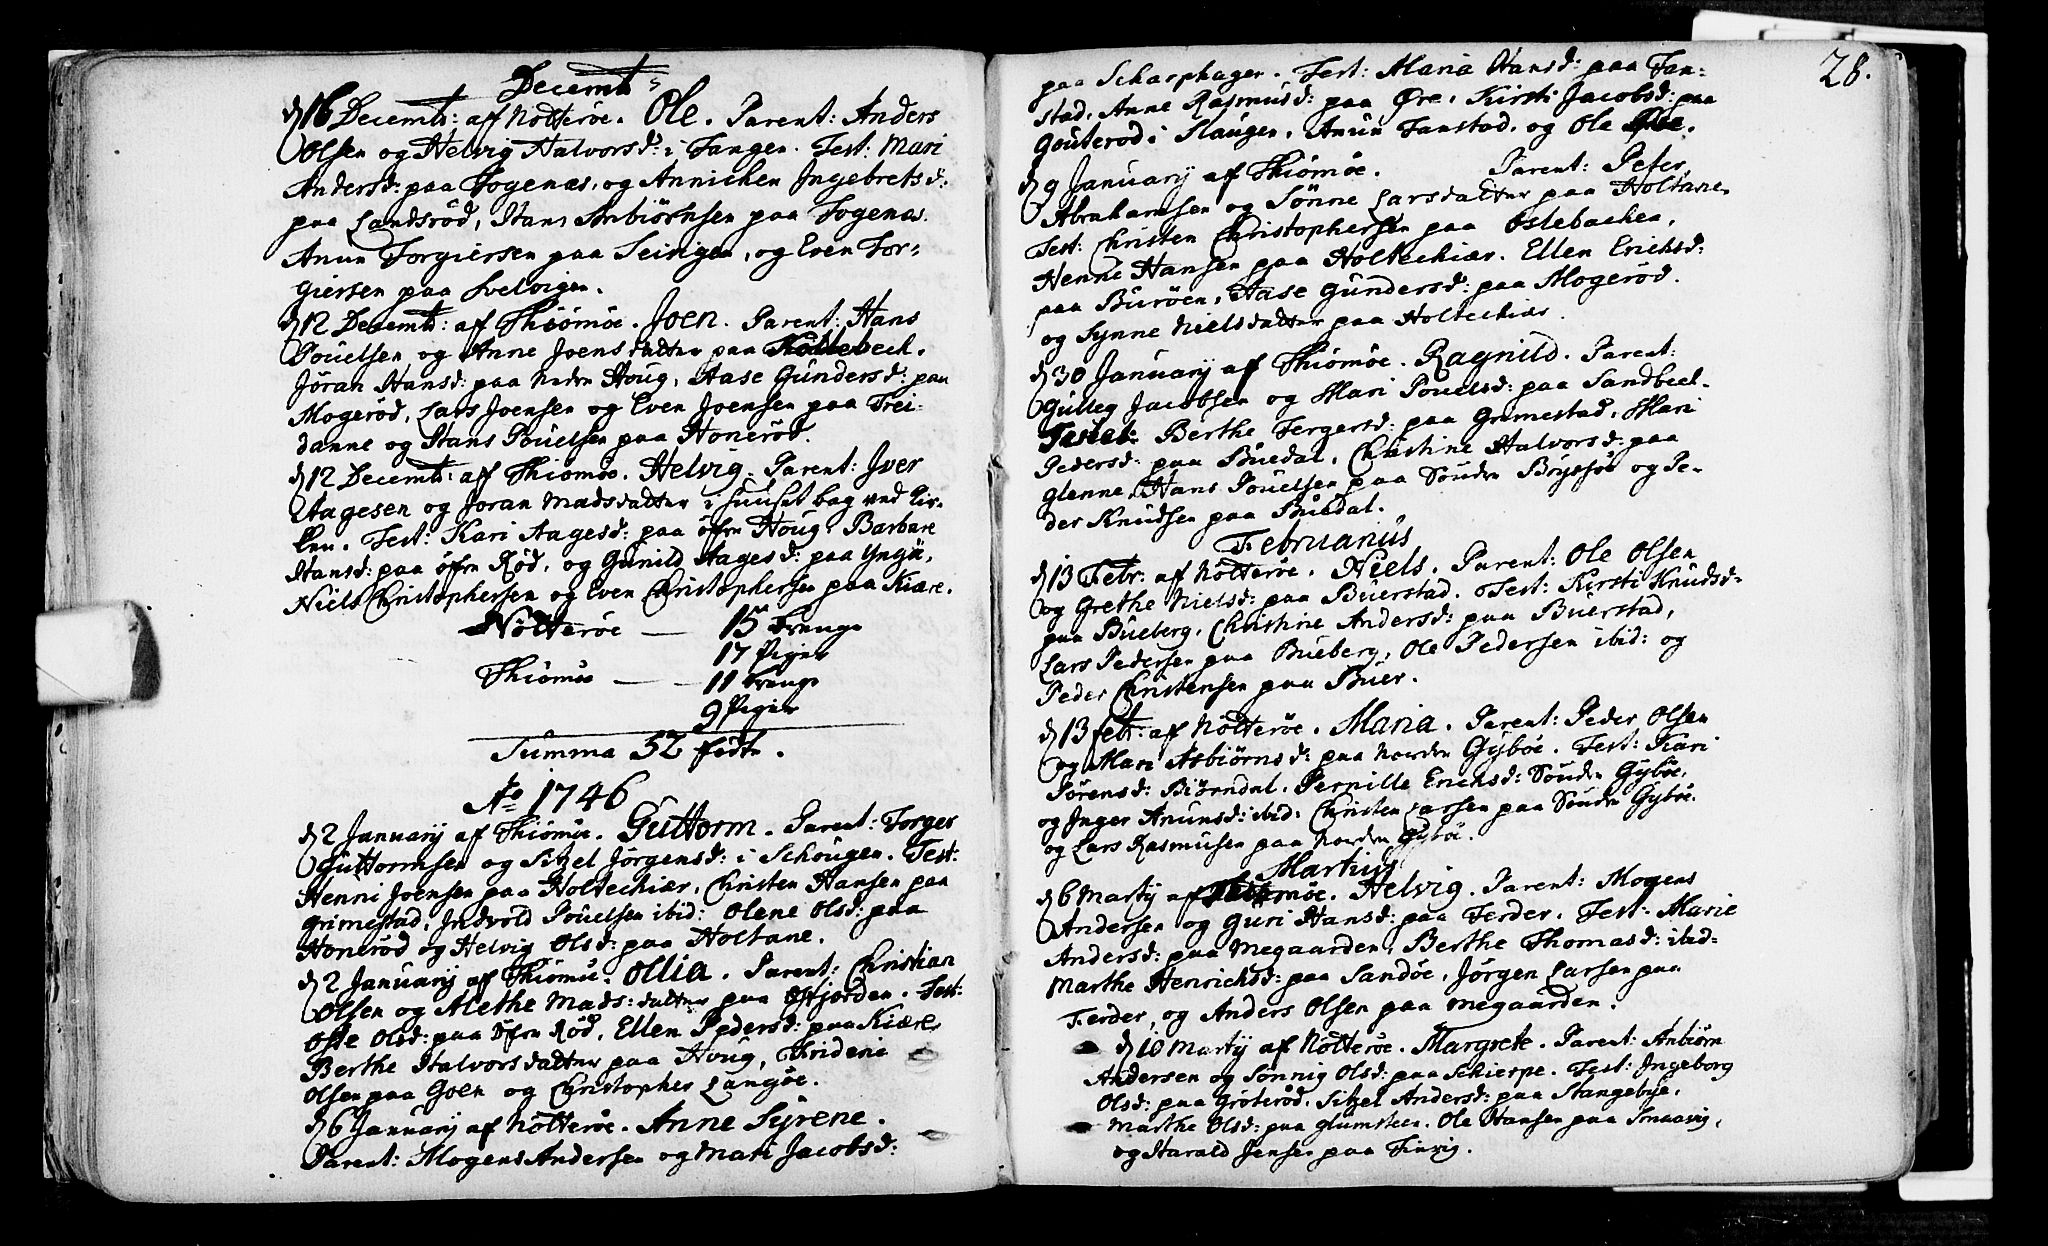 Decembr:
d 16 Decembr: af Nötteröe. Ole. Parent: Anders
Olsen og Helvig Halvorsd: i Tangen. Test: Mari
Andersd: paa Fogenæs, og Annichen Ingebretsd:
paa Landsröd, Hans Anbiörnsen paa Fogenæs.
Anun Torgiersen paa og Even Tor-
giersen paa Svelvigen.
d 12 Decembr: af Thiömöe. Joen. Parent: Hans
Pouelsen og Anne Joensdatter paa Kollebech.
Jöran Hansd: paa neden Houg, Aase Gundersd: paa
Mogeröd, Lars Joensen og Even Joensen paa Trei-
danne og Hans Pouelsen paa Honeröd.
d 12 Decembr: af Thiömöe. Helvig. Parent: Jver
Aagesen og Joran Madsdatter i huuset bag ved Kir-
ken. Test: Kari Aagesd: paa öfre Houg, Barbare
Hansd: paa öfre Röd, og Gunild Aagesd: paa Yngiö,
Niels Christophersen og Even Christophersen paa Kiære.
Nötteröe — 15 Drenge
17 Piger
Thiömöe — 11 Drenge
9 Piger
Summa 52 födte.
Ao 1746
d 2 Januarij af Thiömöe. Guttorm. Parent: Torger
Guttormsen og Sitzel Jörgensd: i Schougen. Test:
Henni Joensen paa Holtechiær, Christen Hansen paa
Grimestad, Indvold Pouelsen ibid: Olene Olsd: paa
Honeröd og Helvig Olsd: paa Holtane.
d 2 Januarij af Thiömö. Ollia. Parent: Christian
Olsen og Alethe Mads: datter paa Östjorden. Test:
Olsd: paa öfre Röd, Ellen Pedersd: paa Kiære
Berthe Halvorsdatter paa Houg, Frideric
Olsen paa Goen og Christopher Langöe.
d 6 Januarij af Nötteröe. Anne Syrene.
Parent: Mogens Andersen og Mari Jacobsd:
28.
paa Scharphagen. Test: Maria Hansd: paa Fan-
stad, Anne Rasmusd: paa Öre, Kirsti Jacobsd: paa
Gouteröd i Slaugen, Anun Fanstad, og Ole
d 9 Januarij af Thiömöe. Parent: Peter
Abrahamsen og Sönne Larsdatter paa Holtane
Test: Christen Christophersen paa Oslebachen,
Henne Hansen paa Holtechiær. Ellen Erichsd:
paa Buröen, Aase Gundersd: paa Mogeröd.
og Synne Nielsdatter paa Holtechiær.
d 30 Januarij af Thiömöe. Ragnild. Parent:
Gulleg Jacobsen og Mari Pouelsd: paa Sandbech.
Testes: Berthe Tergersd: paa Grimestad, Mari
Pedersd: paa Buedal, Christine Halvorsd: paa
Glenne, Hans Pouelsen paa Sönder Brydsöe og Pe-
der Knudsen paa Buedal.
Februarius
d 13 Febr: af Nötteröe. Niels. Parent: Ole Olsen
og Grethe Nielsd: paa Buerstad. Test: Kirsti Knudsd:
paa Bueberg, Christine Andersd: paa Buerstad,
Lars Pedersen paa Bueberg, Ole Pedersen ibid: og
Peder Christensen paa Buer.
d 13 Febr: af Nötteröe. Maria. Parent: Peder Olsen
og Mari Asbiörnsd: paa Norden Gyböe. Test: Kari
Sörensd: Biörndal. Pernille Erichsd: Sönder Gyböe,
og Inger Anunsd: ibid: Christen Larsen paa Sönder Gyböe
og Lars Rasmusen paa Norden Gyböe.
Martius
d 6 Martij af Helvig. Parent: Mogens
Andersen og Guri Hansd: paa Ferder. Test: Marie
Andersd: paa Megaarden, Berthe Thomasd: ibid:
Marthe Henrichsd: paa Sandöe, Jörgen Larsen paa
Ferder, og Anders Olsen paa Megaarden.
d 10 Martij af Nötteröe. Margrete. Parent: Anbiörn
Andersen og Sönnig Olsd: paa Schierpe. Test: Ingeborg
Olsd: paa Gröteröd, Sitzel Andersd: paa Stangebye,
Marthe Olsd: paa Glumsteen. Ole Hansen paa Smaavig,
og Harald Jensen paa Finvig.